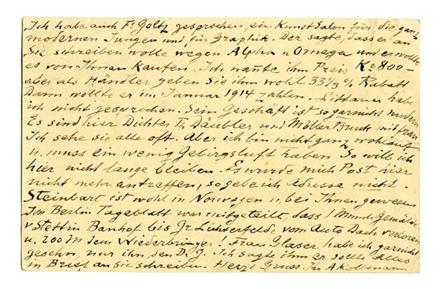 Ich habe auch Fr Goltz gesprochen ein Kunst Salon für die ganz
modernen Jungen und für Graphik. Der sagte, dass er an
Sie schreiben wolle wegen Alpha u Omega und er wolle
es von Ihnen kaufen. Ich nannte ihm Preis Kr 800 –
aber als Händler geben Sie ihm wohl 33 1/3 % Rabatt
Dann wollte er im Januar 1914 zahlen. Littauer habe
ich nicht gesprochen. Sein Geschäft ist so garnicht modern
Es sind hier Dichter T. Däubler und Möller Bruck mit Frau
Ich sehe sie alle oft. Aber ich bin nicht ganz wohlauf
u. muss ein wenig Gebirgsluft haben. So will ich
hier nicht lange bleiben. Es würde mich Post hier
nicht mehr antreffen, so gebe ich Adresse nicht
Steinbart ist wohl in Norwegen u. bei Ihnen gewesen
Im Berlin Tageblatt war mitgeteilt, dass 1 Munch Gemälde
v Stettin Banhof bis Gr Lichterfelde vom Auto Dach verloren
u. 200 M dem Wiederbringer! Frau Glaser habe ich garnicht
gesehn nur ihn den D. G. Ich sagte ihm er sollte Alles
in Brief an Sie schreiben. Herzl Gruss Ihr A Kollmann